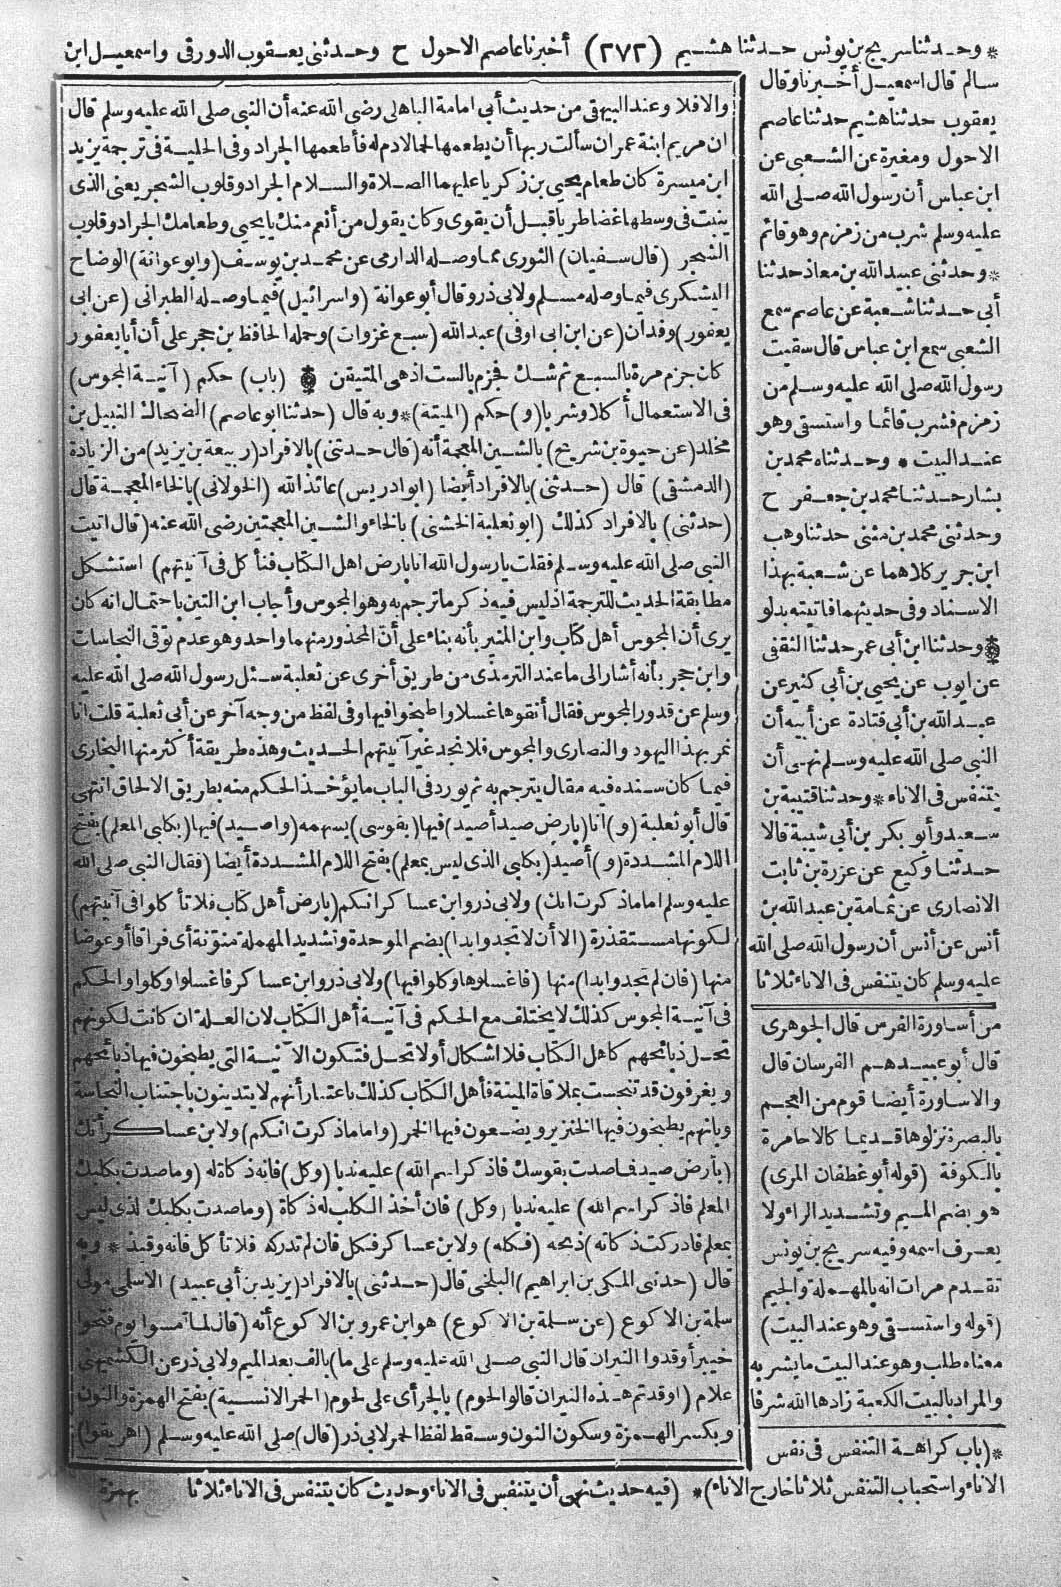 * وحدثنا سريج بن يونس حدثنا هشيم (٢٧٢) أخبرنا عاصم الاحول ح وحدثنى يعقوب الدورقى واسمعيل ابن
سالم قال اسمعيل أخبرنا وقال
يعقوب حدثنا هشيم حدثنا عاصم
الاحول ومغيرة عن الشعبى عن
ابن عباس أن رسول الله صلى الله
عليه وسلم شرب من زمزم وهو قائم
* وحدثنى عبيد الله بن معاذ حدثنا
أبى حدثنا شعبة عن عاصم سمع
الشعبى سمع ابن عباس قال سقيت
رسول الله صلى الله عليه وسلم من
زمزم فشرب قائما واستسقى وهو
عند البيت * وحدثناه محمد بن
بشار حدثنا محمد بن جعفر ح
وحدثنى محمد بن مثنى حدثنا وهب
ابن جرير كلاهما عن شعبة بهذا
الاسناد وفى حديثهما فاتيته بدلو
* وحدثنا ابن أبى عمر حدثنا الثقفى
عن ايوب عن يحيى بن أبى كثير عن
عبد الله بن أبى قتادة عن أبيه أن
النبى صلى الله عليه وسلم نهى أن
يتنفس فى الاناء * وحدثنا قتيبة بن
سعيد وأبو بكر بن أبى شيبة قالا
حدثنا وكيع عن عزرة بن ثابت
الانصارى عن ثمامة بن عبد الله بن
أنس عن أنس أن رسول الله صلى الله
عليه وسلم كان يتنفس فى الاناء ثلاثا
من أساورة الفرس قال الجوهرى
قال أبو عبيد هم الفرسان قال
والاساورة أيضا قوم من العجم
بالبصرة نزلوها قديما كالاحامرة
بالكوفة (قوله أبو غطفان المرى)
هو بضم الميم وتشديد الراء ولا
يعرف اسمه وفيه سريج بن يونس
تقدم مرات انه بالمهملة والجيم
(قوله واستسقى وهو عند البيت)
معناه طلب وهو عند البيت ما يشربه
والمراد بالبيت الكعبة زادها الله شرفا
* (باب كراهة التنفس فى نفس
الاناء واستحباب التنفس ثلاثا خارج الاناء) * (فيه حديث نهى أن يتنفس فى الاناء وحديث كان يتنفس فى الاناء ثلاثا
والافلا وعند البيهقى من حديث أبى امامة الباهلى رضى الله عنه أن النبى صلى الله عليه وسلم قال
ان مريم ابنة عمران سألت ربها أن يطعمها لحما لا دم له فأطعمها الجراد وفى الحلية فى ترجمة يزيد
ابن ميسرة كان طعام يحيى بن زكريا عليهما الصلاة والسلام الجراد وقلوب الشجر يعنى الذى
ينبت فى وسطها غضا طريا قبل أن يقوى وكان يقول من أنعم منك يا يحيى وطعامك الجراد وقلوب
الشجر (قال سفيان) الثورى مما وصله الدارمى عن محمد بن يوسف (وابو عوانة) الوضاح
اليشكرى فيما وصله مسلم ولابى ذر وقال أبو عوانة (واسرائيل) فيما وصله الطبرانى (عن ابى
يعفور) وقدان (عن ابن ابى اوفى) عبد الله (سبع غزوات) وحمله الحافظ بن حجر على أن أبا يعفور
كان جزم مرة بالسبع ثم شك فجزم بالست اذ هى المتيقن * (باب) حكم (آنية المجوس)
فى الاستعمال أكلا وشربا (و) حكم (الميتة) * وبه قال (حدثنا ابو عاصم) الضحاك النبيل بن
مخلد (عن حيوة بن شريح) بالشين المعجمة أنه (قال حدثنى) بالافراد (ربيعة بن يزيد) من الزيادة
(الدمشقى) قال (حدثنى) بالافراد أيضا (ابو ادريس) عائذ الله (الخولانى) بالخاء المعجمة قال
(حدثنى) بالافراد كذلك (ابو ثعلبة الخشنى) بالخاء والشين المعجمتين رضى الله عنه (قال اتيت
النبى صلى الله عليه وسلم فقلت يا رسول الله انا بارض اهل الكتاب فنأكل فى آنيتهم) استشكل
مطابقة الحديث للترجمة اذ ليس فيه ذكر ما ترجم به وهو المجوس وأجاب ابن التين باحتمال انه كان
يرى أن المجوس أهل كتاب وابن المنير بأنه بناء على أن المحذور منهما واحد وهو عدم توقى النجاسات
وابن حجر بأنه أشار الى ما عند الترمذى من طريق أخرى عن ثعلبة سئل رسول الله صلى الله عليه
وسلم عن قدور المجوس فقال أنقوها غسلا واطبخوا فيها وفى لفظ من وجه آخر عن أبى ثعلبة قلت انا
نمر بهذا اليهود والنصارى والمجوس فلا نجد غير آنيتهم الحديث وهذه طريقة أكثر منها البخارى
فيما كان سنده فيه مقال يترجم به ثم يورد فى الباب ما يؤخذ الحكم منه بطريق الالحاق انتهى
قال أبو ثعلبة (و) انا (بارض صيد أصيد) فيها (بقوسى) بسهمه (واصيد) فيها (بكلبى المعلم) بفتح
اللام المشددة (و) أصيد (بكلبى الذى ليس بمعلم) بفتح اللام المشددة أيضا (فقال النبى صلى الله
عليه وسلم اما ما ذكرت انك) ولابى ذر وابن عساكر انكم (بارض أهل كتاب فلا تأكلوا فى آنيتهم)
لكونها مستقذرة (الا أن لا تجدوا بدا) بضم الموحدة وتشديد المهملة منونة أى فراقا أو عوضا
منها (فان لم تجدوا بدا) منها (فاغسلوها وكلوا فيها) ولابى ذر وابن عساكر فاغسلوا وكلوا والحكم
فى آنية المجوس كذلك لا يختلف مع الحكم فى آنية أهل الكتاب لان العلة ان كانت لكونهم
تحل ذبائحهم كاهل الكتاب فلا اشكال أو لا تحل فتكون الآنية التى يطبخون فيها ذبائحهم
ويغرفون قد تنجست بملاقاة الميتة فأهل الكتاب كذلك باعتبار أنهم لا يتدينون باجتناب النجاسة
وبانهم يطبخون فيها الخنزير ويضعون فيها الخمر (واما ما ذكرت انكم) ولابن عساكر أنك
(بارض صيد فما صدت بقوسك فاذكر اسم الله) عليه ندبا (وكل) فانه ذكاة له (وما صدت بكلبك
المعلم فاذكر اسم الله) عليه ندبا (وكل) فان أخذ الكلب له ذكاة (وما صدت بكلبك الذى ليس
بمعلم فادركت ذكاته) ذبحه (فكله) ولابن عساكر فكل فان لم تدركه فلا تأكل فانه وقيذ * وبه
قال (حدثنى المكى بن ابراهيم) البلخى قال (حدثنى) بالافراد (يزيد بن أبى عبيد) الاسلمى مولى
سلمة بن الاكوع (عن سلمة بن الاكوع) هو ابن عمرو بن الاكوع أنه (قال لما أمسوا يوم فتحوا
خيبر أوقدوا النيران قال النبى صلى الله عليه وسلم على ما) بالف بعد الميم ولابى ذر عن الكشميهنى
علام (اوقدتم هذه النيران قالوا لحوم) بالجر أى على لحوم (الحمر الانسية) بفتح الهمزة والنون
وبكسر الهمزة وسكون النون وسقط لفظ الحمر لابى ذر (قال) صلى الله عليه وسلم (اهريقوا)
بهمزة